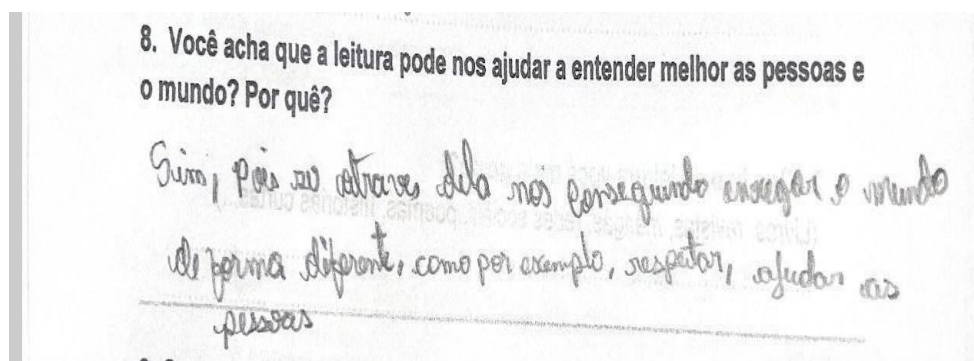 8. Você acha que a leitura pode nos ajudar a entender melhor as pessoas e
o mundo? Por quê?
Sim, pois so atraves dela nos conseguindo enxegar o mundo
de forma diferente, como por exemplo, respeitar, ajudar as
pessoas